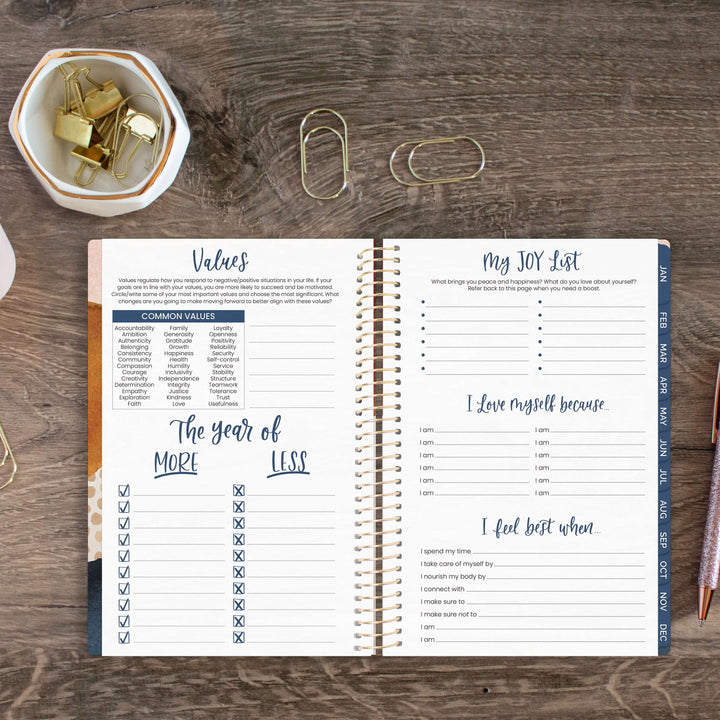 Values
Values regulate how you respond to negative/positive situations in your life. If your
goals are in line with your values, you are more likely to succeed and be motivated.
Circle/write some of your most important values and choose the most significant. What
changes are you going to make moving forward to better align with these values?
COMMON VALUES
Accountability Family Loyalty
Ambition Generosity Openness
Authenticity Gratitude Positivity
Belonging Growth Reliability
Consistency Happiness Security
Community Health Self-control
Compassion Humility Service
Courage Inclusivity Stability
Creativity Independence Structure
Determination Integrity Teamwork
Empathy Justice Tolerance
Exploration Kindness Trust
Faith Love Usefulness
The Year of
MORE LESS
My JOY List
What brings you peace and happiness? What do you love about yourself?
Refer back to this page when you need a boost.
I Love myself because...
I am I am
I am I am
I am I am
I am I am
I am I am
I am I am
I feel best when...
I spend my time
I take care of myself by
I nourish my body by
I connect with
I make sure to
I make sure not to
I am
I am
JAN
FEB
MAR
APR
MAY
JUN
JUL
AUG
SEP
OCT
NOV
DEC